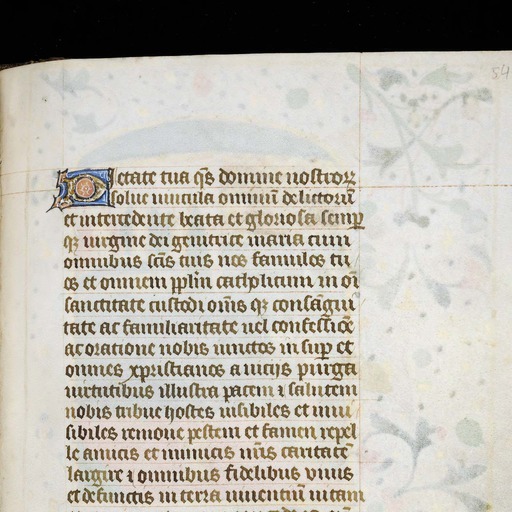 54
Pietate tua qs̄ domine nostroꝝ
solue uincula omniū delictorū
et intercedente beata et gloriosa semꝑ
qꝫ uirgine dei genitrice maria cum
omnibus sc̄is tuis nos famulos tu
os et omnem ppl̄m catholicum in oī
sanctitate custodi oīnis qꝫ consāgui
tate ac familiaritate uel confessiōe
ac oratione nobis iunctos in suꝑ et
omnes xpristianos a uicijs purga
uirtutibus illustra pacem ⁊ salutem
nobis tribue hostes uisibiles et inui
sibiles remoue pestem et famen repel
le amicis et inimicis nr̄is caritatē
largire ⁊ omnibus fidelibus viuis
et defunctis in terra uiuentiū uitam